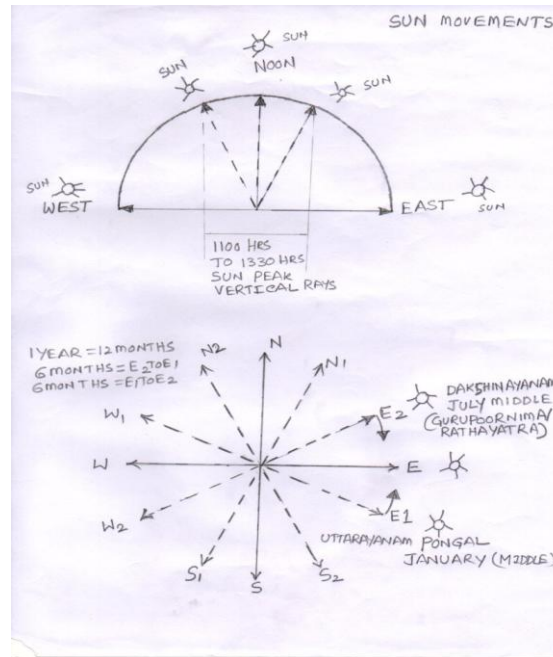 SUN MOVEMENTS
SUN
NOON
SUN
SUN
SUN
WEST
EAST
SUN
1100 HRS
TO 1330 HRS
SUN PEAK
VERTICAL RAYS
1 YEAR = 12 MONTHS
6 MONTHS = E2 TO E1
6 MONTHS = E1 TO E2
N2
N
N1
DAKSHINAYANAM
JULY MIDDLE
(GURUPOORNIMA/
RATHAYATRA)
E2
W1
W
E
W2
E1
UTTARAYANAM PONGAL
JANUARY (MIDDLE)
S1
S
S2